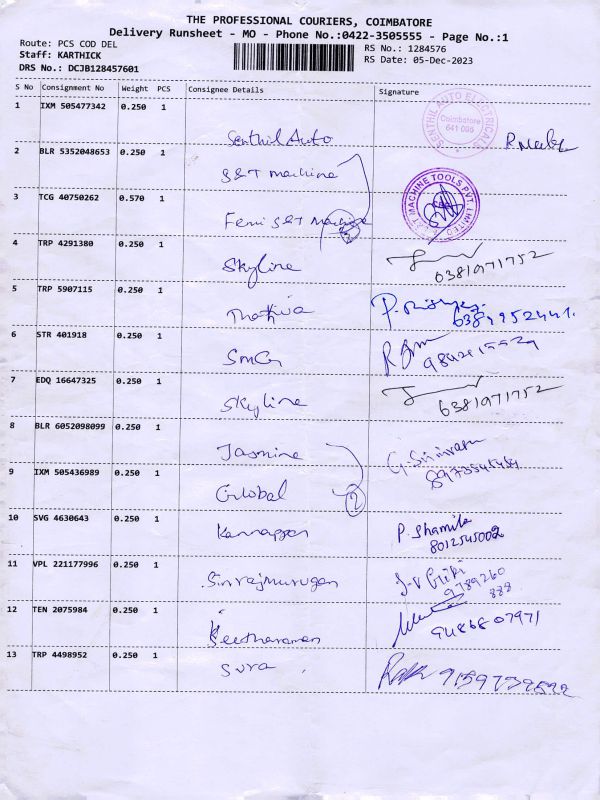 THE PROFESSIONAL COURIERS, COIMBATORE
Delivery Runsheet - MO - Phone No.:0422-3505555 - Page No.:1
Route: PCS COD DEL
RS No.: 1284576
Staff: KARTHICK
RS Date: 05-Dec-2023
DRS No.: DCJB128457601
S No Consignment No Weight PCS Consignee Details Signature
1 IXM 505477342 0.250 1
SENTHIL AUTO ELECTRICALS
Coimbatore
Senthil Auto
2 BLR 5352048653 0.250 1
S&T machine
MACHINE TOOLS PVT. LIMITED
3 TCG 40750262 0.570 1
Femi S&T Machine
4 TRP 4291380 0.250 1
Skyline 6381971752
5 TRP 5907115 0.250 1
6 STR 401918 0.250 1
7 EDQ 16647325 0.250 1
Skyline 6381971752
8 BLR 6052098099 0.250 1
Jasmine G. Srinivasan
9 IXM 505436989 0.250 1
Global 2
10 SVG 4630643 0.250 1
Kannappan P. Shamila
8012545002
11 VPL 221177996 0.250 1
Sivrajmurugan
9789260
888
12 TEN 2075984 0.250 1
Seetharaman 9486807971
13 TRP 4498952 0.250 1
Sura